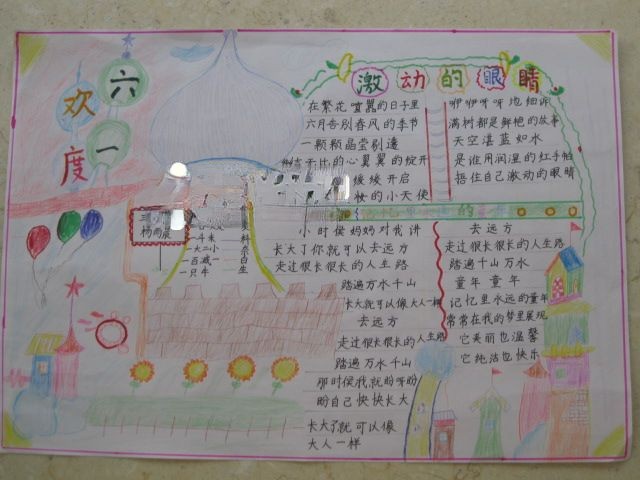 欢度
六一
激动的眼睛
在繁花喧嚣的日子里
六月告别春风的季节
一颗颗晶莹剔透
的心翼翼的绽开
缓缓开启
的小天使
咿咿呀呀地细诉
满树都是鲜艳的故事
天空湛蓝如水
是谁用润湿的红手帕
捂住自己激动的眼睛
杨雨宸
一斗米
一大二小
一百减一
一只牛
小时侯妈妈对我讲
长大了你就可以去远方
走过很长很长的人生路
踏遍万水千山
长大就可以像大人一样
去远方
走过很长很长的人生路
踏遍万水千山
那时侯我就盼呀盼
盼自己快快长大
长大了就可以像
大人一样
去远方
走过很长很长的人生路
踏遍千山万水
童年 童年
记忆里永远的童年
常常在我的梦里展现
它美丽也温馨
它纯洁也快乐